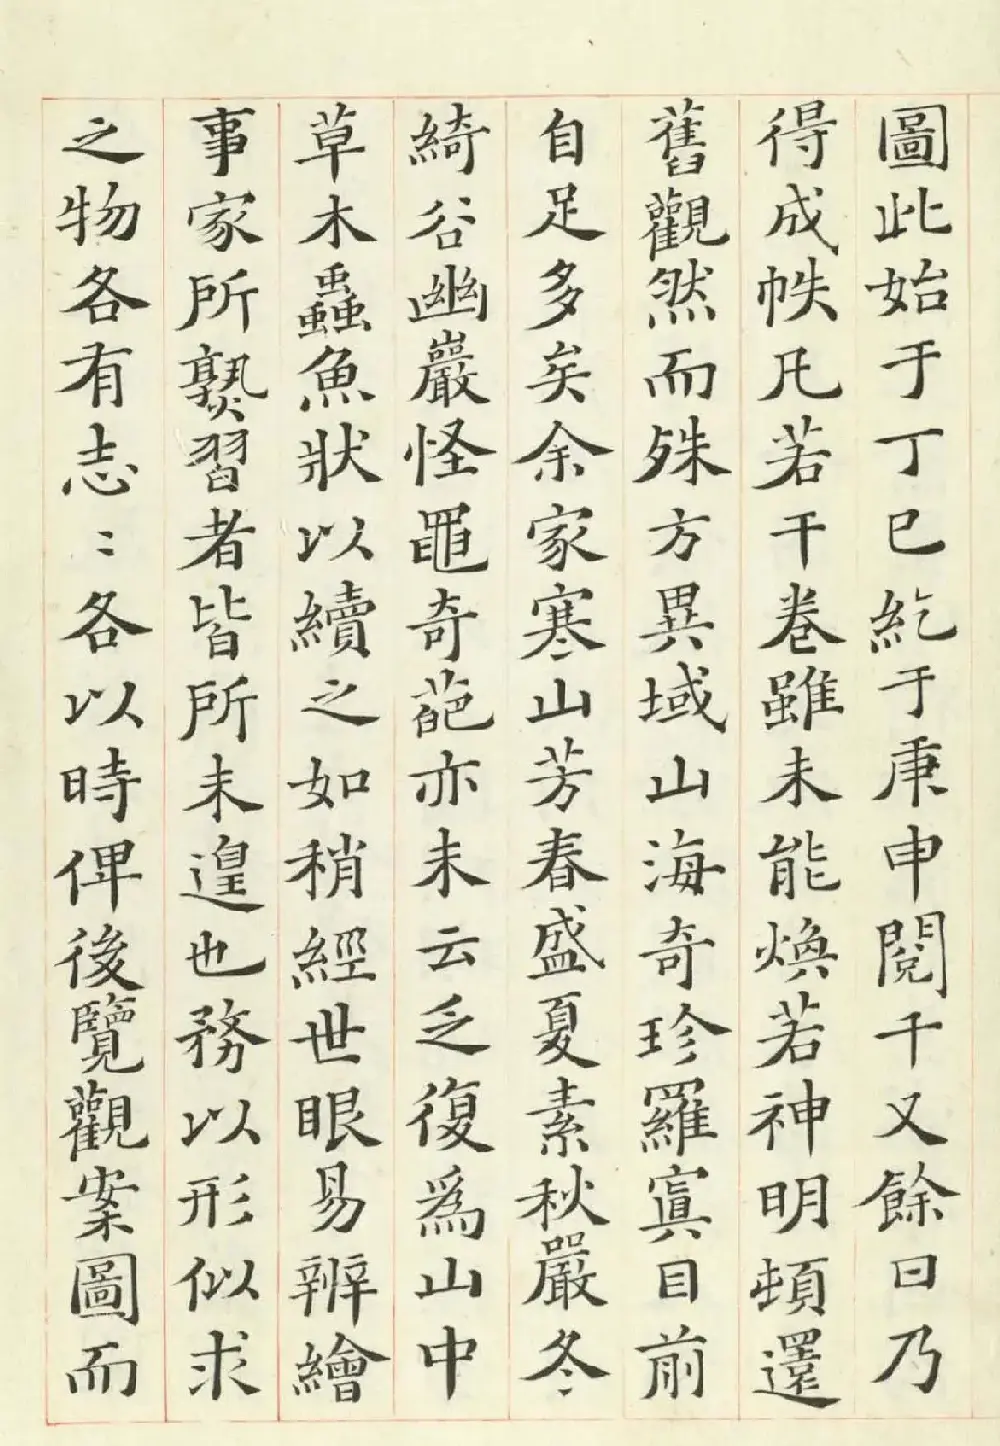 圖此始于丁巳紇于庚申閱千又餘日乃
得成帙凡若干卷雖未能煥若神明頓還
舊觀然而殊方異域山海奇珍羅寘目前
自足多矣余家寒山芳春盛夏素秋嚴冬
綺谷幽巖怪黽奇葩亦未云乏復為山中
草木蟲魚狀以續之如稍經世眼易辨繪
事家所熟習者皆所未遑也務以形似求
之物各有志〻各以時俾後覽觀案圖而